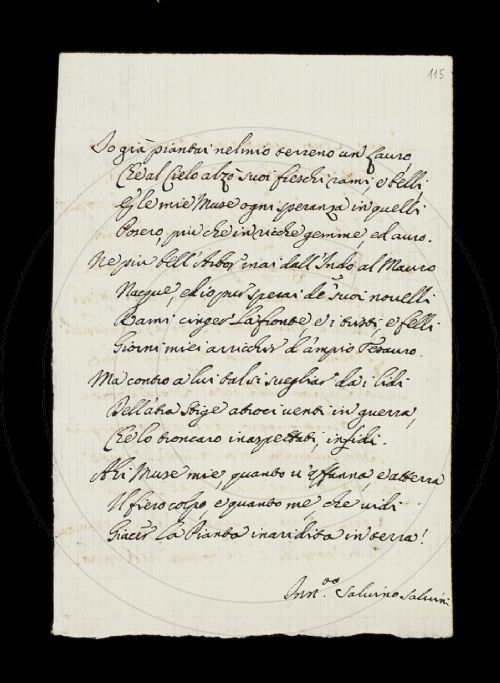 115
Io già piantai nel mio terreno un Lauro,
Che al Cielo alzò suoi freschi rami, e belli
E le mie Muse ogni speranza in quelli
Posero più che in ricche gemme, ed auro.
Ne più bell'Arbor mai dall'Indo al Mauro
Nacque, ed io pur sperai de suoi novelli
Rami cinger la fronte, e i tristi, e felli
Giorni miei arricchir d'ampio Tesauro.
Ma contro a lui tal si svegliar da i lidi
Dell'atra Stige atroci venti in guerra,
Che lo troncaro inaspettati, infidi.
Ahi Muse mie, quanto v'affanna, e atterra
Il fiero colpo e quanto me, che vidi
Giacer la Pianta inaridita in terra!
Salvino Salvini